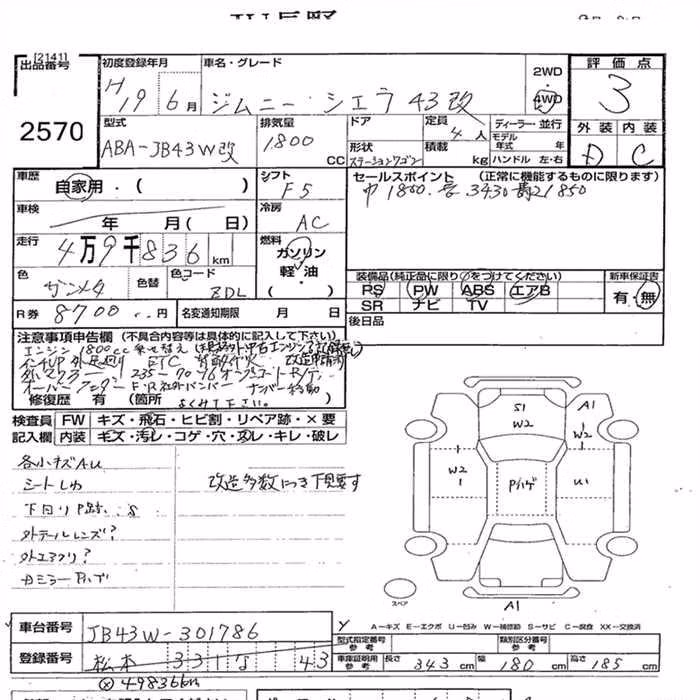 JU長野
[2141]
出品番号
2570
初度登録年月
H19 6月
車名・グレード
ジムニー・シエラ 43改
2WD
4WD
評価点
3
型式
ABA-JB43W改
排気量
1800
CC
ドア
形状
ステーションワゴン
定員
4人
積載
kg
ディーラー・並行
モデル
年式 年
ハンドル 左・右
外装 内装
D C
車歴
自家用・( )
シフト
F5
セールスポイント (正常に機能するものに限ります)
巾1800.長3430高さ1850
車検
年 月(日)
冷房
AC
走行
4万9千836km
燃料
ガソリン
軽・油
( )
色
ガンメタ
色替
色コード
ZDL
装備品(純正品に限り○をつけてください)
PS PW ABS エアB
SR ナビ TV
新車保証書
有・無
R券
8700円
名変通知期限 月 日
後日品
注意事項申告欄 (不具合内容等は具体的に記入して下さい)
エンジン1800cc乗せ替え
ETC
235-70-16
オーバーフェンダー F・R社外バンパー ナンバー移動
修復歴 有 (箇所
よくみて下さい。
検査員 FW キズ・飛石・ヒビ割・リペア跡・×要
記入欄 内装 キズ・汚レ・コゲ・穴・スレ・キレ・破レ
各小キズAU
シートしわ
改造多数につき下見要す
下回りP跡. S
外テールレンズ?
外エアクリ?
S1
W2
A1
W2
W2
1
Pハゲ
U1
スペア
A1
A-キズ E-エクボ U-凹み W-補修跡 S-サビ C-腐食 XX-交換済
車台番号
JB43W-301786
登録番号
松本 331 な 43
型式指定番号
参考
類別区分番号
参考
車庫証明用
参考
長さ 343cm 幅 180cm 高さ 185cm
※49836km